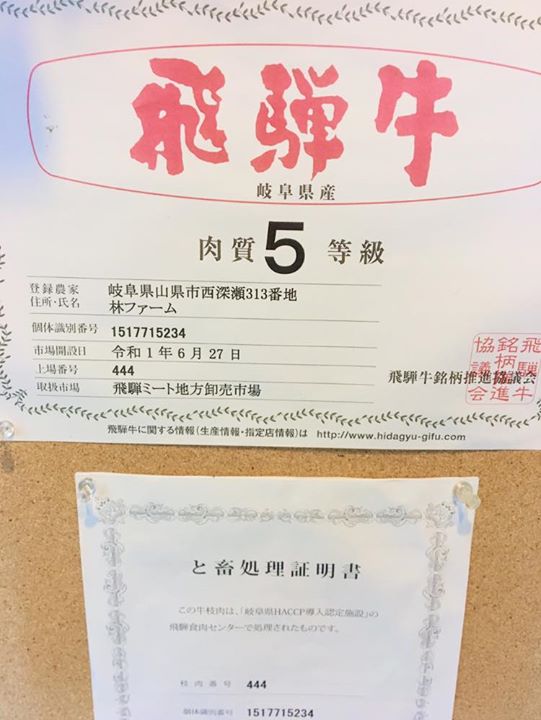 飛騨牛
岐阜県産
肉質5等級
登録農家 住所・氏名 岐阜県山県市西深瀬313番地
林ファーム
個体識別番号 1517715234
市場開設日 令和1年6月27日
上場番号 444
取扱市場 飛騨ミート地方卸売市場
飛騨牛銘柄推進協議会
飛騨牛
銘柄推進
協議会
飛騨牛に関する情報(生産情報・指定店情報)は http://www.hidagyu-gifu.com
と畜処理証明書
この牛枝肉は、「岐阜県HACCP導入認定施設」の
飛騨食肉センターで処理されたものです。
枝肉番号 444
個体識別番号 1517715234